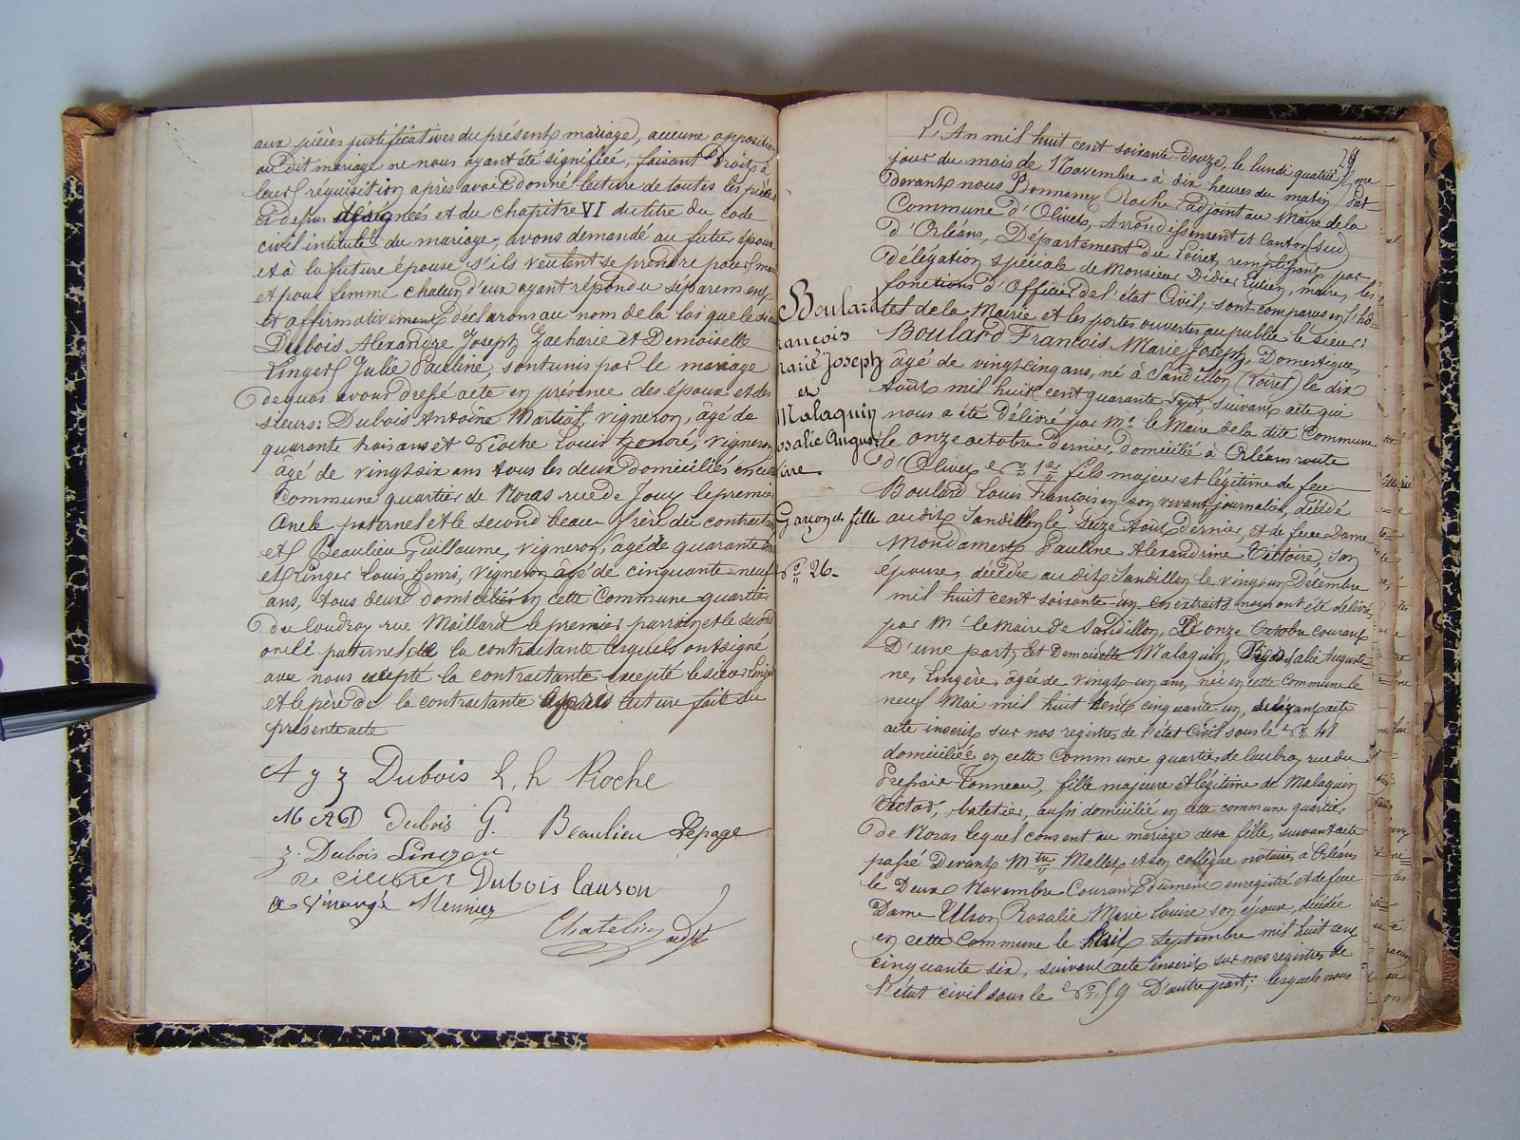 aux pièces justificatives du présent mariage, aucune opposition
au dit mariage ne nous ayant été signifiée, faisant Droit à
leur réquisition après avoir donné lecture de toutes les pièces
ci depus désignées et du chapitre VI du titre du code
civil intitulé du mariage, avons demandé au futur époux
et à la future épouse s'ils veulent se prendre pour mari
et pour femme chacun d'eux ayant répondu séparement
et affirmativement déclarons au nom de la loi que le sieur
Dubois Alexandre Joseph Zacharie et Demoiselle
Linger Julie Pauline, sont unis par le mariage
de quoi avons dressé acte en présence des époux et des
sieurs: Dubois Antoine Martial, vigneron, âgé de
quarante trois ans et Pioche Louis honoré, Vigneron
âgé de vingt six ans tous les deux domiciliés en cette
Commune quartier de Noras rue de Jouy le premier
Oncle paternel et le second beau-frère du contractant
et Beaulieu Guillaume, vigneron, âgé de quarante
et Linger Louis henri, Vigneron âgé de cinquante-neuf
ans, tous deux domiciliés en cette Commune quartier
du Coudray rue Maillard le premier parrain et le second
oncle paternel de la contractante lesquels ont signé
avec nous excepté la contractante excepté le sieur Linger
et le père de la contractante après lecture fait du
présente acte
A J Z Dubois L. h Pioche
M A D Dubois G. Beaulieu Lepage
Z. Dubois Linger
Dubois Lauron
Meunier
Chatelin adjt
29
L'An mil huit cent soixante douze, le lundi quatrième
jour du mois de Novembre à dix heures du matin Par
devant nous Bonnemer Roche, adjoint au Maire de la
Commune d'Olivet, Arrondissement et Canton (sud)
d'Orléans, Département du Loiret, remplissant par
délégation spéciale de Monsieur Didier Lucien, maire, les
fonctions d'Officier de l'état Civil, sont comparus en l'hô-
tel de la Mairie et les portes ouvertes au public le sieur:
Boulard François Marie Joseph, Domestique,
âgé de vingt cinq ans, né à Sandillon (Loiret) le dix
Août mil huit cent quarante sept, suivant acte qui
nous a été délivré par Mr. le Maire de la dite Commune
le onze octobre dernier, domicilié à Orléans route
d'Olivet No 1er fils majeur et légitime de feu
Boulard Louis François en son vivant journalier, décédé
au dit Sandillon le seize Août dernier, et de feue Dame
Mondament Pauline Alexandrine Victoire, son
épouse, décédée au dit Sandillon le vingt un Décembre
mil huit cent soixante un, en extraits nous ont été délivrés
par Mr le Maire de Sandillon, le onze Octobre courant
D'une part, et Demoiselle Malaquin, Rosalie Augusti-
ne, Lingère, âgée de vingt-un ans, née en cette Commune le
neuf Mai mil huit cent cinquante un, suivant acte
acte inscrit sur nos registres de l'état Civil sous le No 41
domiciliée en cette Commune quartier de Coudray rue du
Presoir Tonneau, fille majeure et légitime de Malaquin
Victor, batelier, aussi domicilié en cette commune quartier
de Noras lequel consent au mariage de sa fille, suivant acte
passé devant Mtre Mallet et son collègue notaires à Orléans
le Deux Novembre Courant Dûment enregistré et de feue
Dame Ulson Rosalie Marie Louise, son épouse, décédée
en cette Commune le huit septembre mil huit cent
cinquante six, suivant acte inscrit sur nos registres de
l'état civil sous le No 59 D'autre part; lesquels nous
Boulard
François
Marie Joseph
et
Malaquin
Rosalie Augus-
tine
Garçon et fille
No 26.